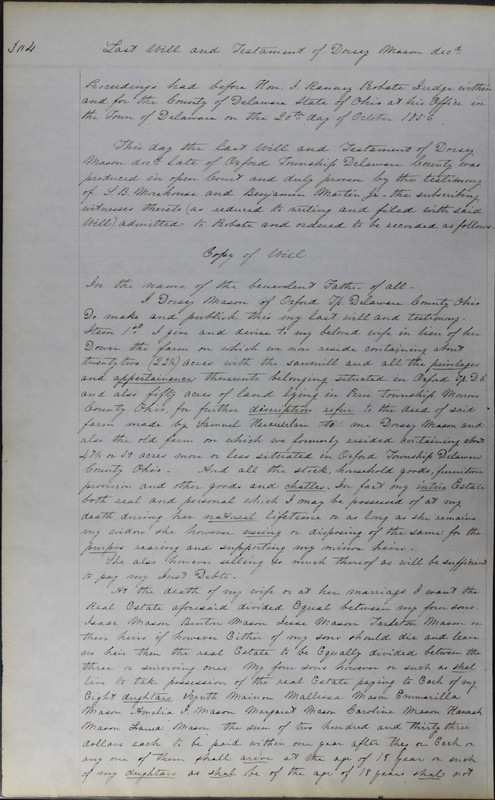 304 Last Will and Testament of Dorsey Mason decd
Proceedings had before Hon. T. Ranney Probate Judge within
and for the County of Delaware State of Ohio at his Office in
the Town of Delaware on the 20th day of October 1856
This day the Last Will and Testament of Dorsey
Mason decd late of Oxford Township Delaware County was
produced in open Court and duly proven by the testimony
of S. B. Morehouse and Benjamin Martin Jr - the subscribing
witnesses thereto (as reduced to writing and filed with said
Will) admitted to Probate and ordered to be recorded as follows
Copy of Will
In the name of the benevolent Father of all -
I Dorsey Mason of Oxford Tp. Delaware County Ohio
Do make and publish this my last will and testimony.
Item 1st I give and devise to my beloved wife in lieu of her
Dower the farm on which we now reside containing about
twenty two (22½) acres with the sawmill and all the privileges
and appertainences thereunto belonging situated in Oxford Tp. D.C.
and also fifty acres of land lying in Peru township Morrow
County Ohio, for further discription refer to the deed of said
farm made by Samuel to me Dorsey Mason and
also the old farm on which we formerly resided containing about
47½ or 50 acres more or less situated in Oxford Township Delaware
County Ohio - And all the stock, household goods, furniture
provision and other goods and chattles. In fact my intire Estate
both real and personal which I may be possessed of at my
death, during her natural lifetime or as long as she remains
my widow she however useing or disposing of the same for the
purpos rasing and supporting my minor heirs.
She also however selling so much thereof as will be sufficient
to pay my Just Debts.
At the death of my wife or at her marriage I want the
Real Estate aforesaid divided Equal between my four sons.
Isaac Mason Benton Mason Jesse Mason Tarleton Mason or
their heirs if however Either of my sons should die and leave
no heir then the real Estate to be Equally divided between the
three or surviving ones. My four sons however or such as shal
liv to take possession of the real Estate paying to Each of my
Eight daughters Mallissa Mason Emmarilla
Mason Amelia I. Mason Margaret Mason Caroline Mason Hannah
Mason Laura Mason the sum of two hundred and thirty three
dollars each to be paid within one year after they or Each or
any one of them shall arive at the age of 18 year or such
of my daughters as shal be of the age of 18 years shal not